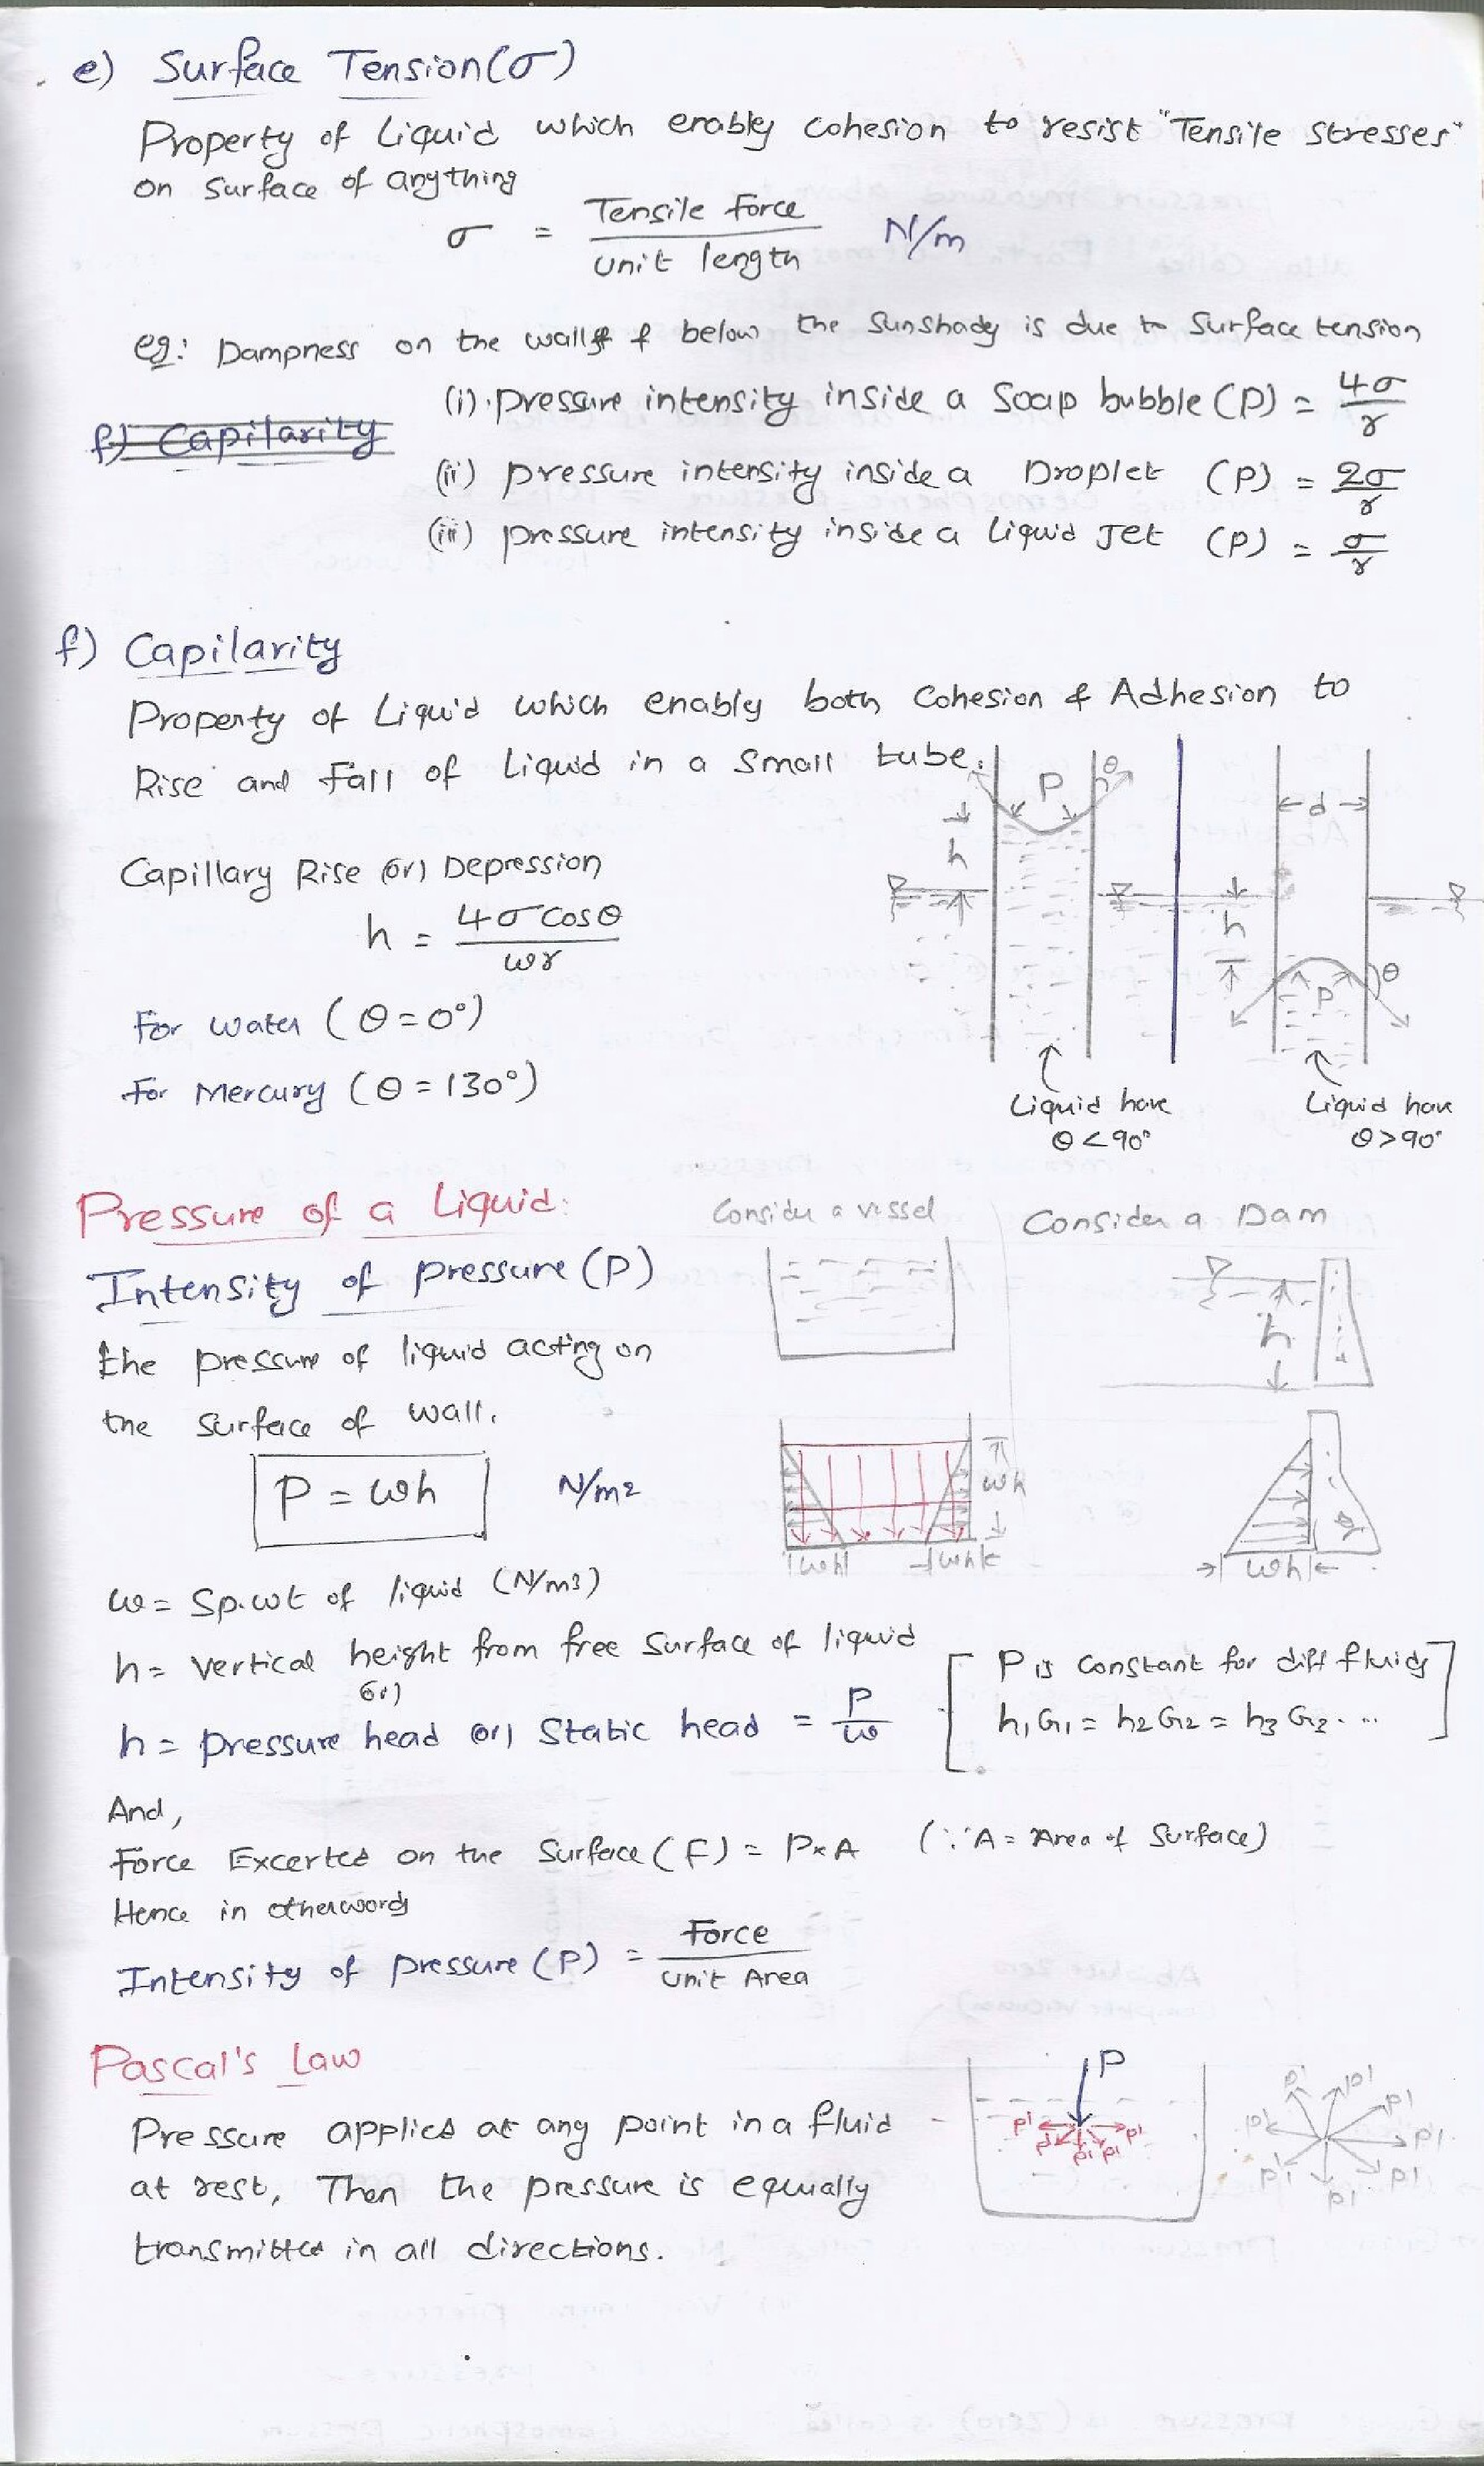 e) Surface Tension (σ)
Property of Liquid which enably cohesion to resist "Tensile Stresses"
on Surface of anything
σ = Tensile force / unit length N/m
eg: Dampness on the walls & below the Sunshady is due to Surface tension
(i). pressure intensity inside a Soap bubble (P) = 4σ/r
f) Capilarity
(ii) pressure intensity inside a Droplet (P) = 2σ/r
(iii) pressure intensity inside a Liquid Jet (P) = σ/r
f) Capilarity
Property of Liquid which enably both Cohesion & Adhesion to
Rise and Fall of Liquid in a Small tube.
P θ
d
h
Capillary Rise (or) Depression
h = 4σ cosθ / wr
h
θ
P
For water (θ = 0°)
For Mercury (θ = 130°)
Liquid have
θ < 90°
Liquid have
θ > 90°
Pressure of a Liquid:
Consider a vessel
Consider a Dam
Intensity of pressure (P)
h
the pressure of liquid acting on
the Surface of wall.
P = wh N/m2
wh
wh wh
wh
w = Sp.wt of liquid (N/m3)
h = vertical height from free Surface of liquid
(or)
h = pressure head (or) Static head = P/w
P is constant for diff fluids
h1G1 = h2G2 = h3G3 ....
And,
Force Excerted on the Surface (F) = P×A (∵ A = Area of Surface)
Hence in otherwords
Intensity of pressure (P) = Force / unit Area
Pascal's Law
Pressure applied at any point in a fluid
at rest, Then the pressure is equially
transmitted in all directions.
P
p1 p1 p1 p1 p1
p1 p1 p1 p1 p1 p1 p1 p1